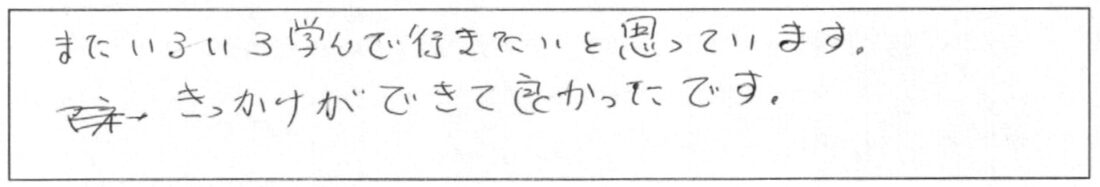 またいろいろ学んで行きたいと思っています。
きっかけができて良かったです。